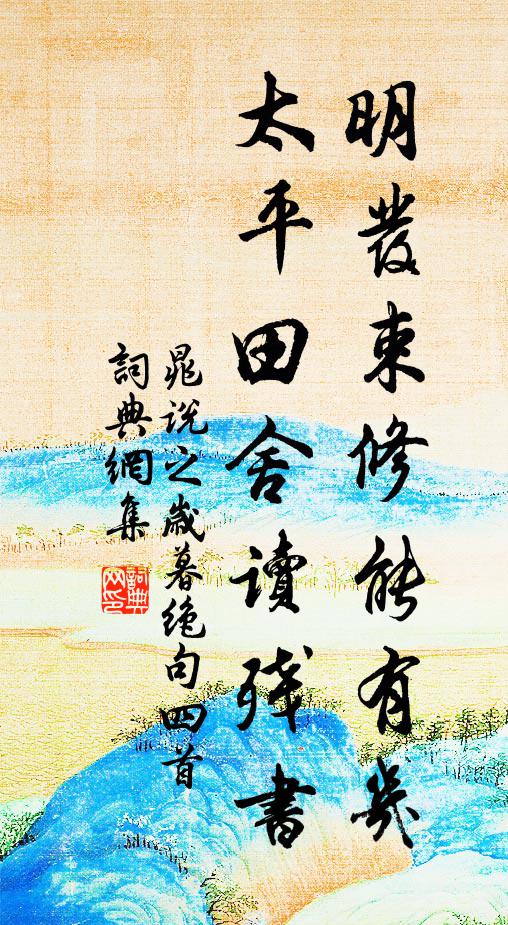 明發束修能有幾
太平田舍讀殘書
晁說之歲暮絕句四首
詞典網集
詞典網印